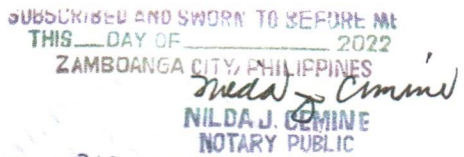 SUBSCRIBED AND SWORN TO BEFORE ME
THIS___DAY OF__________ 2022
ZAMBOANGA CITY, PHILIPPINES
NILDA J. CEMINE
NOTARY PUBLIC